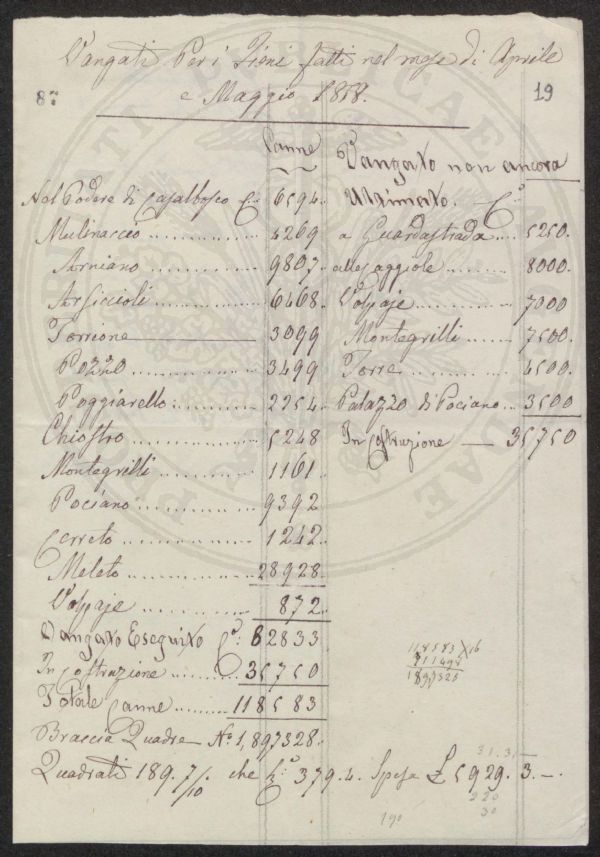 Vangati Per i Fieni fatti nel mese di Aprile
e Maggio 1858.
87
19
Canne
Nel Podere di Casalbosco C.e 6594.
Mulinaccio 4269
Armiano 9807
Arsiccioli 6468
Torrione 3099
Pozzo 3499
Poggiarello 2254
Chiostro 5248
Montegrilli 1161
Pociano 9392
Cerreto 1242
Meleto 28928
Volpaje 872
Vangato Eseguito C.e 82833
In Costruzione 35750
Totale Canne 118583
Braccia Quadre N.o 1,897328.
Quadrati 189. 7/10 che 379.4. Spesa £ 5929. 3. —.
Vangato non ancora
Ultimato. C.e
a Guardastrada 5250.
alle Faggiole 8000.
Volpaje 7000
Montegrilli 7500.
Torre 4500.
Palazzo di Pociano 3500
In Costruzione — 35750
118583 X 16
711498
1897328
31.3.—
220
30
190
PIETATI PUBLICAE